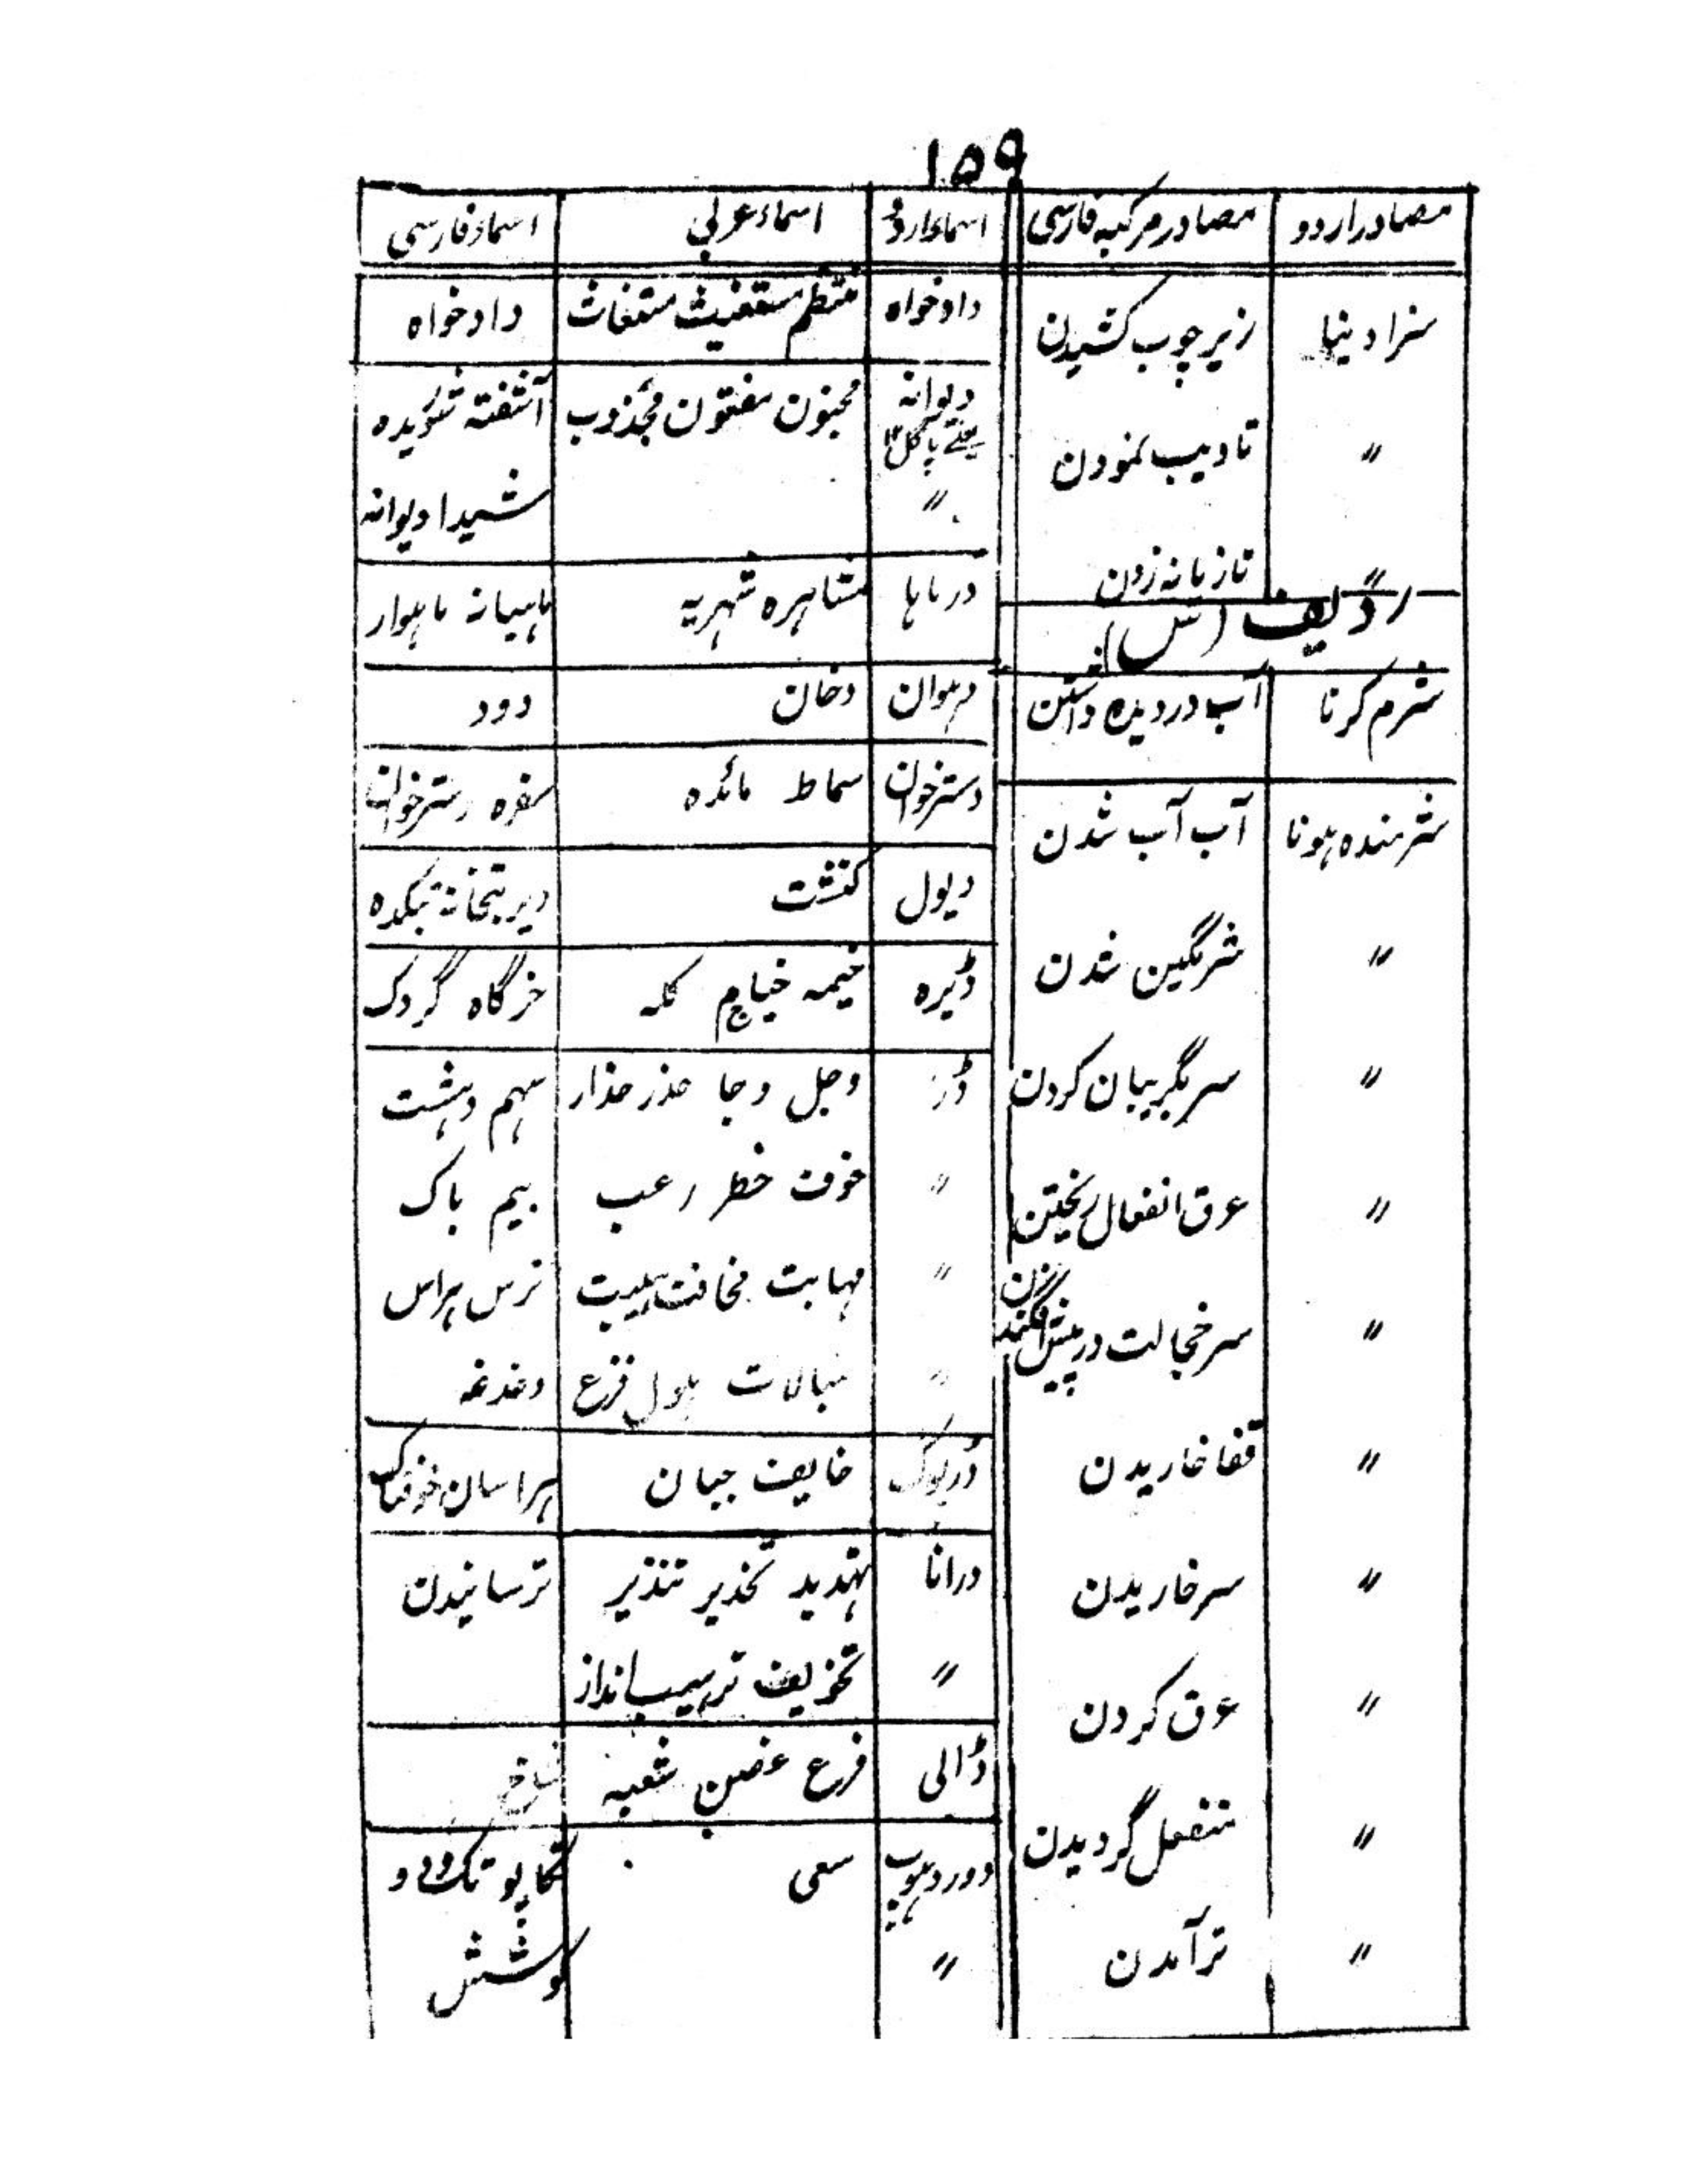 ۱۵۹
مصادر اردو | مصادر مرکبہ فارسی
سزا دینا | زیر چوب کشیدن
〃 | تادیب نمودن
〃 | تازیانہ زدن
ردیف (ش)
شرم کرنا | آب در دیدہ داشتن
شرمندہ ہونا | آب آب شدن
〃 | شرمگین شدن
〃 | سر بگریبان کردن
〃 | عرق انفعال ریختن
〃 | سر خجالت در پیش افگندن
〃 | قفا خاریدن
〃 | سر خاریدن
〃 | عرق کردن
〃 | منفعل گردیدن
〃 | تر آمدن
اسماء اردو | اسماء عربی | اسماء فارسی
دادخواہ | متظلم مستغیث مستغاث | دادخواہ
دیوانہ یعنے پاگل | مجنون مفتون مجذوب | آشفتہ شوریدہ
〃 | | شیدا دیوانہ
درماہا | مشاہرہ شہریہ | ماہیانہ ماہوار
دہوان | دخان | دود
دسترخوان | سماط مائدہ | سفرہ دسترخوان
دیول | کنشت | دیر بتخانہ بتکدہ
ڈیرہ | خیمہ خیام کلہ | خرگاہ گردک
ڈر | وجل وجا حذر حذار | سہم دہشت
〃 | خوف خطر رعب | بیم باک
〃 | مہابت مخافت ہیبت | ترس ہراس
〃 | مبالات ہول فزع | دغدغہ
ڈرپوک | خایف جبان | ہراسان خوفناک
درانا | تہدید تحذیر تنذیر | ترسانیدن
〃 | تخویف ترہیب انذار
ڈالی | فرع غصن شعبہ | شاخ
دوڑ دہوپ | سعی | تگاپو تگ و دو
〃 | | کوشش